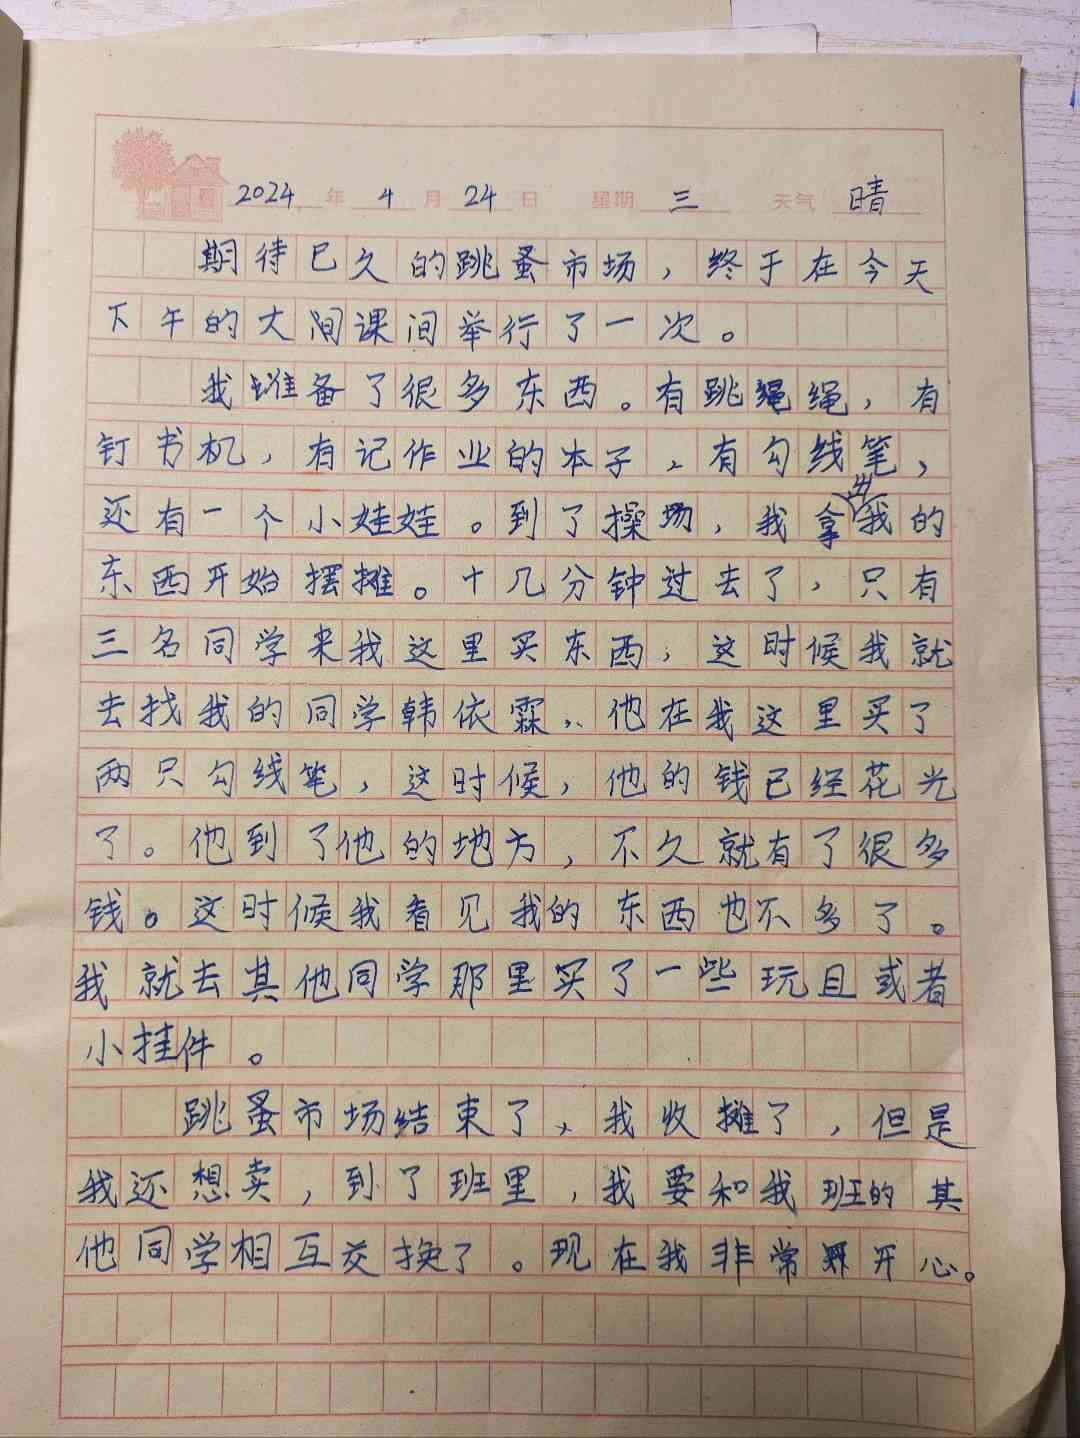 2024 年 4 月 24 日 星期 三 天气 晴
期待已久的跳蚤市场，终于在今天
下午的大间课间举行了一次。
我准备了很多东西。有跳绳绳，有
钉书机，有记作业的本子，有勾线笔，
还有一个小娃娃。到了操场，我拿出我的
东西开始摆摊。十几分钟过去了，只有
三名同学来我这里买东西，这时候我就
去找我的同学韩依霖，他在我这里买了
两只勾线笔，这时候，他的钱已经花光
了。他到了他的地方，不久就有了很多
钱。这时候我看见我的东西也不多了。
我就去其他同学那里买了一些玩且或者
小挂件。
跳蚤市场结束了，我收摊了，但是
我还想卖，到了班里，我要和我班的其
他同学相互交换了。现在我非常开心。